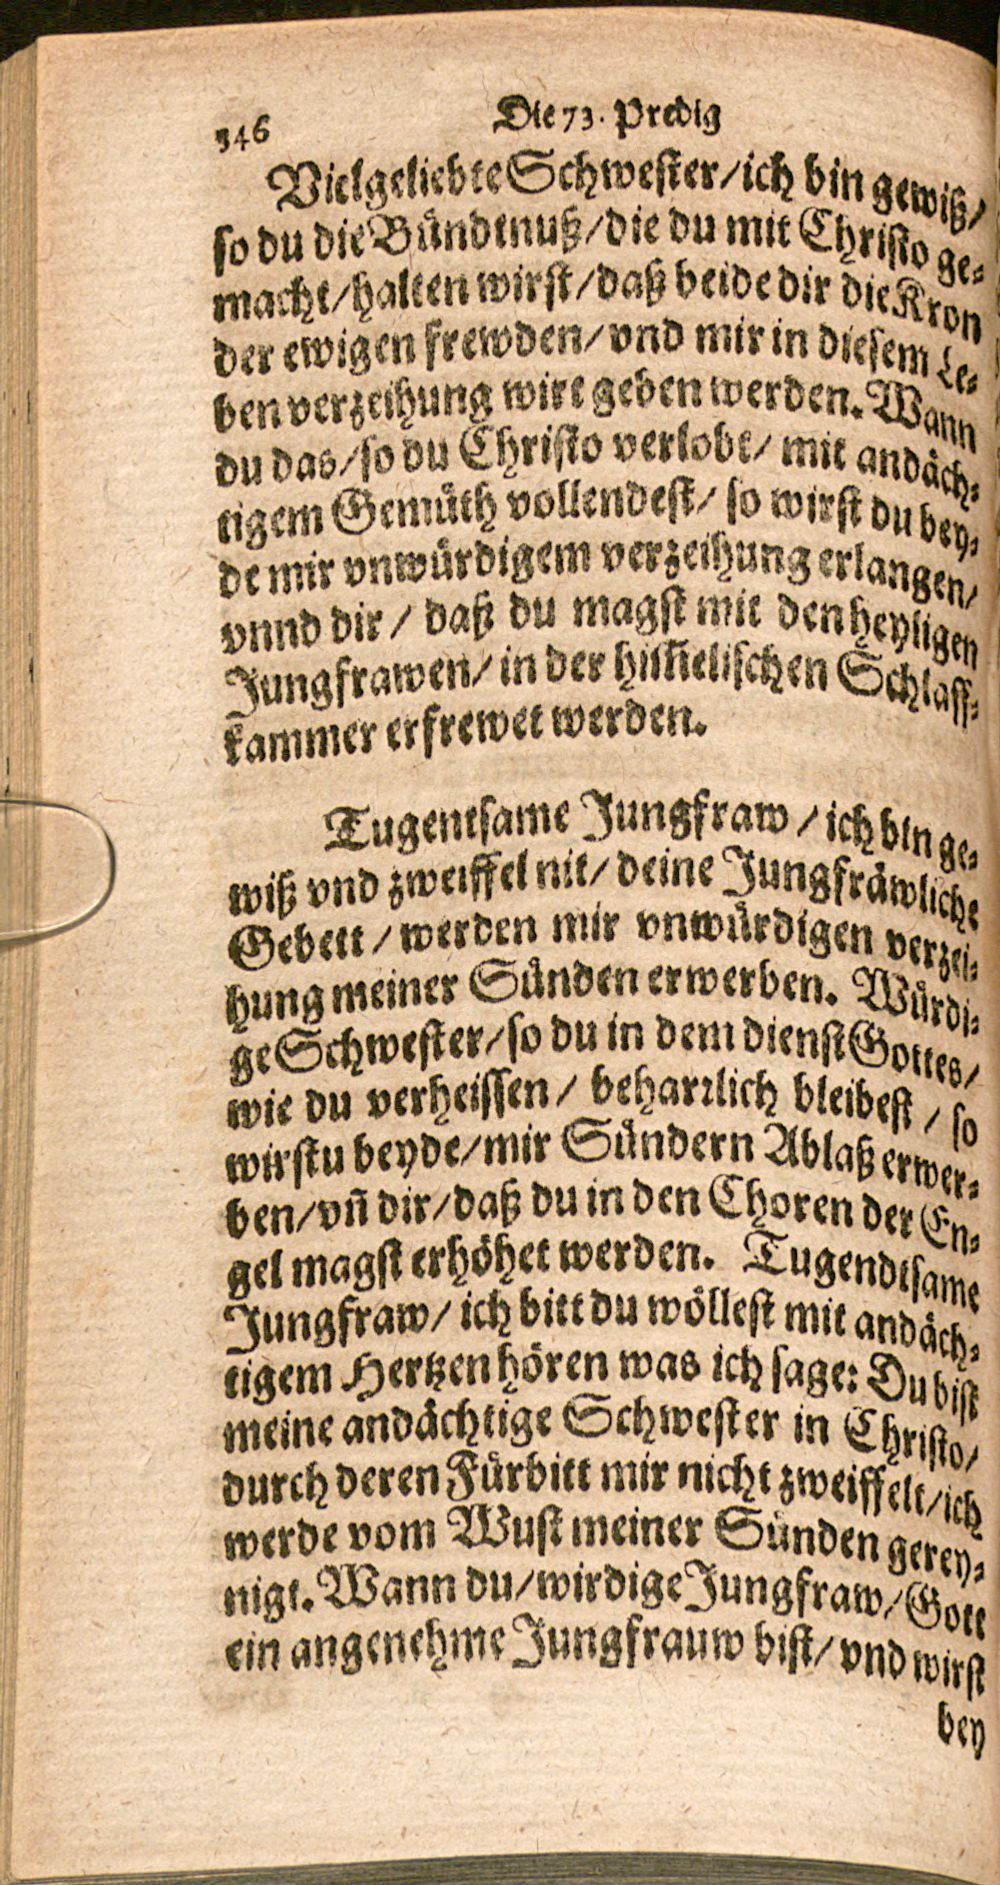 346 Die 73. Predig
Vielgeliebte Schwester/ich bin gewiß/
so du die Bündtnuß/die du mit Christo ge-
macht/halten wirst/daß beide dir die Kron
der ewigen frewden/vnd mir in diesem Le-
ben verzeihung wirt geben werden. Wann
du das/so du Christo verlobt/ mit andäch-
tigem Gemüth vollendest/ so wirst du bey-
de mir vnwürdigem verzeihung erlangen/
vnnd dir / daß du magst mit den heyligen
Jungfrawen/ in der him̃elischen Schlaff-
kammer erfrewet werden.
Tugentsame Jungfraw / ich bin ge-
wiß vnd zweiffel nit/ deine Jungfräwliche
Gebett / werden mir vnwürdigen verzei-
hung meiner Sünden erwerben. Würdi-
ge Schwester/so du in dem dienst Gottes/
wie du verheissen / beharrlich bleibest / so
wirstu beyde/mir Sündern Ablaß erwer-
ben/vn̄ dir/daß du in den Choren der En-
gel magst erhöhet werden. Tugendtsame
Jungfraw/ ich bitt du wöllest mit andäch-
tigem Hertzen hören was ich sage: Du bist
meine andächtige Schwester in Christo/
durch deren Fürbitt mir nicht zweiffelt/ich
werde vom Wust meiner Sünden gerey-
nigt. Wann du/wirdige Jungfraw/Gott
ein angenehme Jungfrauw bist/ vnd wirst
bey